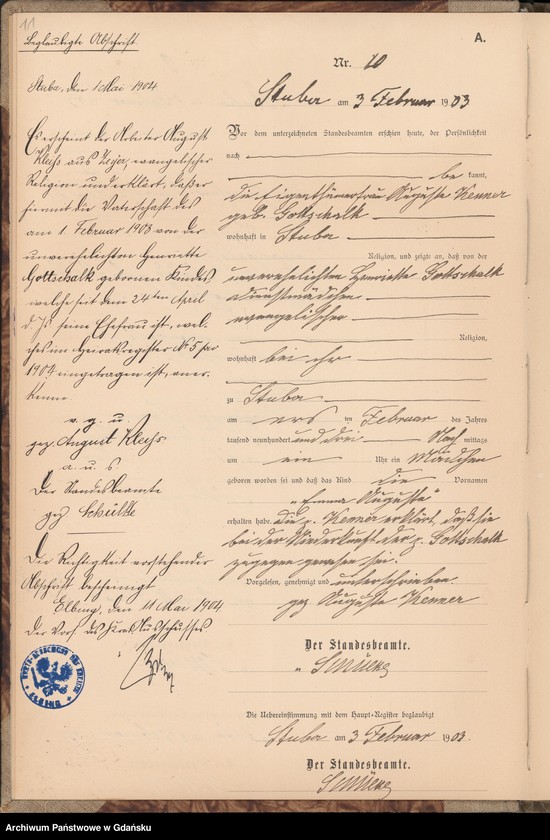 11
Beglaubigte Abschrift.
Stuba, den 1 Mai 1904
Es erscheint der Arbeiter August
Kleiss aus Zeyer, evangelischer
Religion und erklärt, daß er
hiermit die Vaterschaft des
am 1 Februar 1903 von der
unverehelichten Henriette
Gottschalk geborenen Kindes,
welche seit dem 24ten April
d. Js. seine Ehefrau ist, wel-
ches im Heiratsregister No 5 pro
1904 eingetragen ist, aner-
kenne.
v. g. u.
gez. August Kleiss
a. u. s.
Der Standesbeamte
gez Schultze
Die Richtigkeit vorstehender
Abschrift bescheinigt
Elbing, den 11 Mai 1904
Der Vors des Kreis Ausschusses
ELBING
A.
Nr. 10
Stuba am 3 Februar 1903
Vor dem unterzeichneten Standesbeamten erschien heute, der Persönlichkeit
nach
be kannt,
die Eigenthümerfrau Auguste Kenner
geb. Gottschalk
wohnhaft in Stuba
Religion, und zeigte an, daß von der
unverehelichten Henriette Gottschalk
Dienstmädchen
evangelischer
Religion,
wohnhaft bei ihr
zu Stuba
am ersten Februar des Jahres
tausend neunhundert und drei Nach mittags
um ein Uhr ein Mädchen
geboren worden sei und daß das Kind die Vornamen
„Emma Auguste"
erhalten habe. die p. Kenner erklärt, daß sie
bei der Niederkunft der p. Gottschalk
zugegen gewesen sei.
Vorgelesen, genehmigt und unterschrieben.
gez Auguste Kenner
Der Standesbeamte.
Die Uebereinstimmung mit dem Haupt-Register beglaubigt
Stuba am 3 Februar 1903.
Der Standesbeamte.
Archiwum Państwowe w Gdańsku